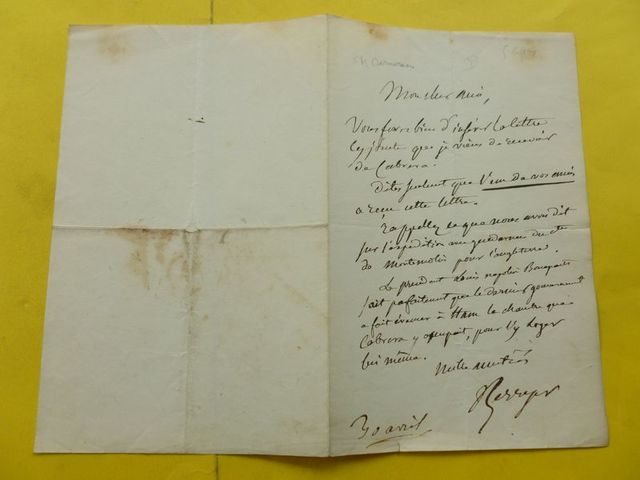 Mon cher ami,
Vous ferez bien d'insérer la lettre
ci jointe que je viens de recevoir
de Cabrera.
Dites seulement que l'un de vos amis
a reçu cette lettre.
Rappellez ce que nous avons dit
sur l'expédition avec gendarmes du cte
de Montemolin pour l'Angleterre.
Le président Louis napoléon Bonaparte
sait parfaitement que le dernier gouvernement
a fait évacuer à Ham la chambre que
Cabrera y occupait, pour l'y loger
lui même.
mille amitiés
30 avril